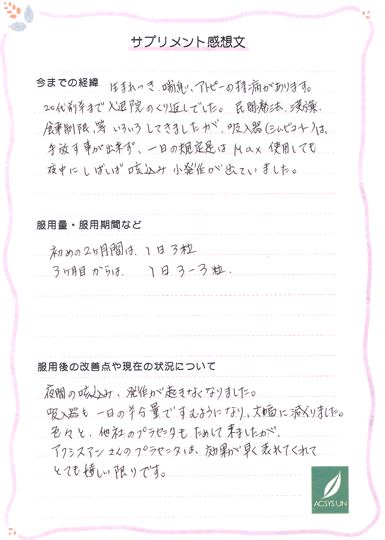 サプリメント感想文
今までの経緯 生まれつき、喘息、アトピーの持病があります。
20代前半まで入退院のくり返しでした。民間療法、漢薬、
食事制限、等いろいろしてきましたが、吸入器(シムビコート)は、
手放す事が出来ず、一日の規定量はMax使用しても
夜中にしばしば咳込み小発作が出ていました。
服用量・服用期間など
初めの2ヶ月間は、1日3粒
3ヶ月目からは、1日3-3粒.
服用後の改善点や現在の状況について
夜間の咳込み、発作が起きなくなりました。
吸入器も一日の半分量ですむようになり、大幅に減りました。
色々と、他社のプラセンタもためして来ましたが、
アクシスアンさんのプラセンタは、効果が早く表れてくれて
とても嬉しい限りです。
ACSYS UN